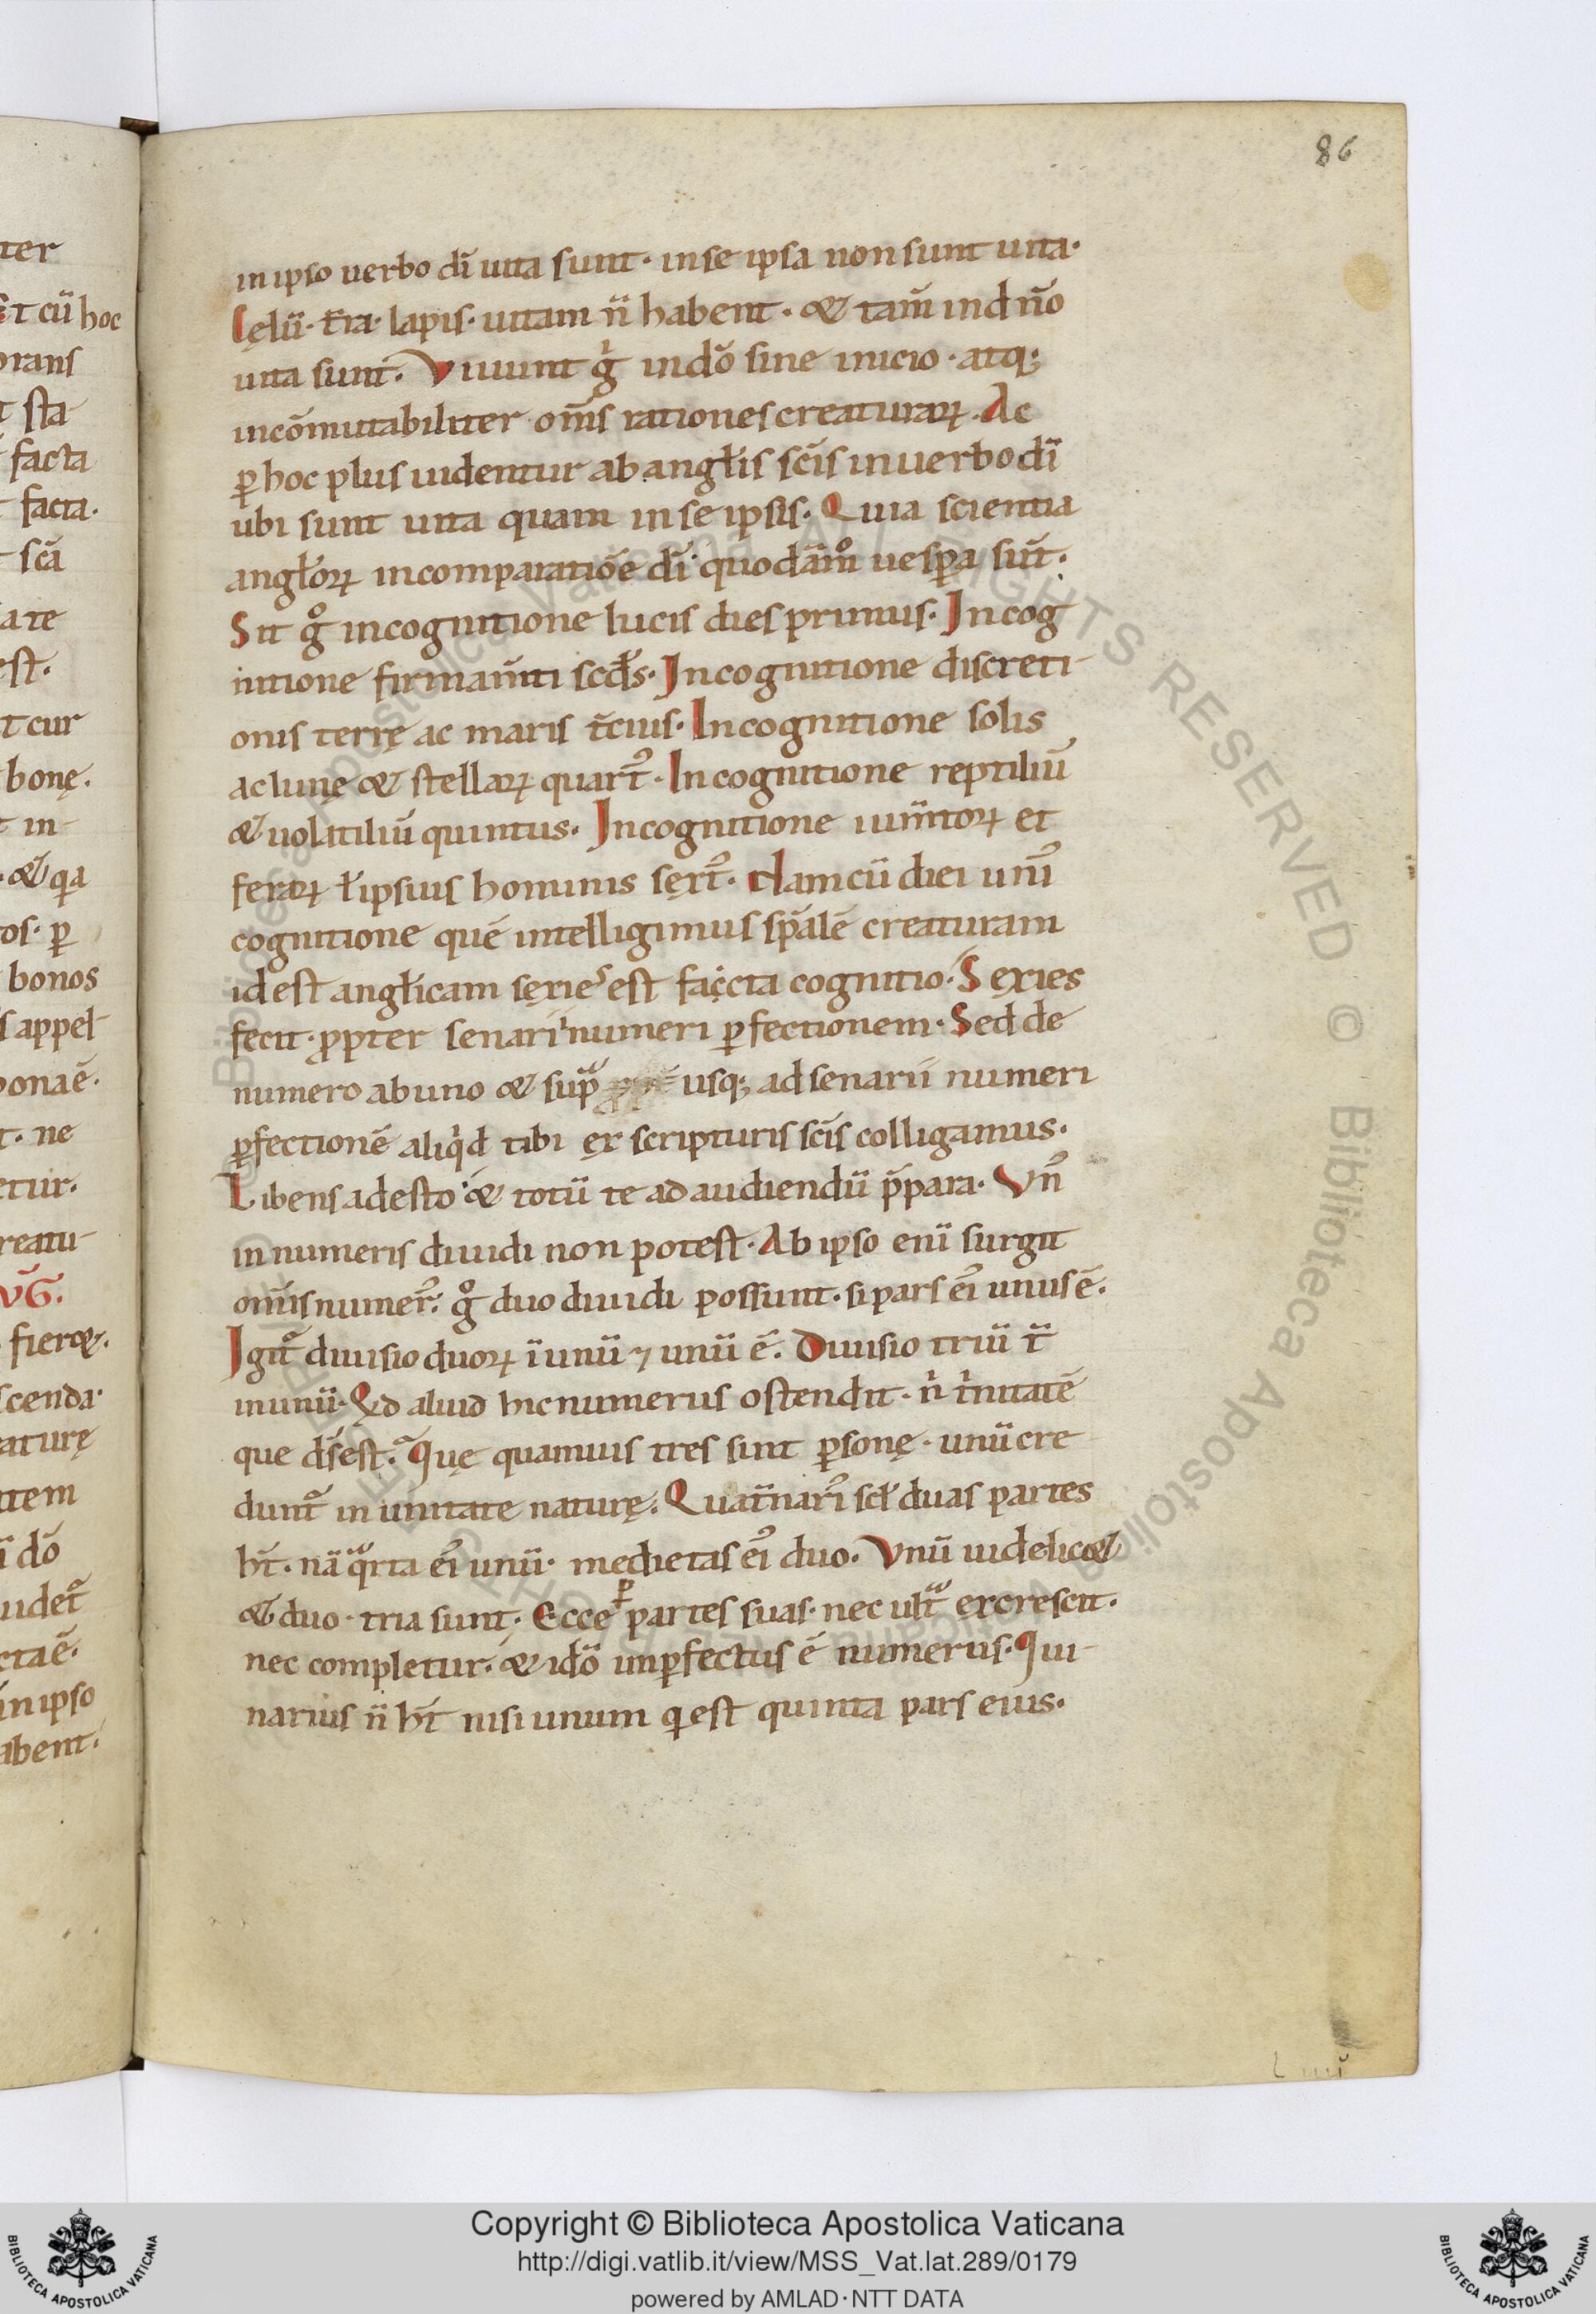 86
in ipso uerbo dī uita sunt· in se ipsa non sunt uita·
Cęlū· t̄ra· lapis· uitam n̄ habent· & tam̄ in dn̄o
uita sunt. Viuunt g̊ in dō sine inicio· atq;
incōmutabiliter om̄s rationes creaturaꝝ. Ac
ꝑ hoc plus uidentur ab angl̄is sc̄is in uerbo dī
ubi sunt uita quam in se ipsis. Quia scientia
angl̄oꝝ in comparatiōe dī· quodām̊ uesꝑa sūt·
Sit g̊ in cognitione lucis dies primus. In cog
nitione firmam̄ti scd̄s. In cognitione discreti-
onis terrę ac maris t̄cius. In cognitione solis
ac lunę & stellaꝝ quart᷒. In cognitione reptiliū
& uolatiliū quintus. In cognitione ium̄toꝝ et
feraꝝ ł ipsius hominis sęxt᷒. Nam cū diei uni᷒
cognitione quē intelligimus sp̄alē creaturam
id est angl̄icam sęxies est faccta cognitio. Sęxies
fecit· ꝓpter senarii numeri ꝑfectionem. Sed de
numero ab uno & supᷓ usq; ad senarii numeri
ꝑfectionē aliq̇d tibi ex scripturis sc̄is colligamus.
Libens adesto· & totū te ad audiendū p̄para. Vn᷒
in numeris diuidi non potest. Ab ipso enī surgit
om̄is numer᷒. g̊ duo diuidi possunt· si pars ei᷒ unus ē.
Igit᷑ diuisio duoꝝ ī unū ⁊ unū ē. Diuisio triū t̄
in unū. Qd aliud hic numerus ostendit· n̊ t̊nitatē
que d̄s est. Quę quamuis tres sint ꝑsonę· unū cre
dunt᷑ in unitate naturę. Quat̄nari᷒ scł duas partes
ht̄. nā qᷓrta ei᷒ unū· medietas ei᷒ duo. Vnū uidelic&
& duo· tria sunt. Ecce ꝑ partes suas· nec ultᷓ excrescit.
nec completur. & idō imꝑfectus ē numerus. Qui-
narius n̄ ht̄ nisi unum q est quinta pars eius.
ter
t cū hoc
orans
t sta
facta
facta.
scā
ate
est.
t cur
bonę.
in-
& qa
os· ꝑ
bonos
s appel-
bonaē.
t. ne
etur.
reatu-
VG.
fier&.
scenda·
aturę
item
dō
uidet᷑
ctaē.
in ipso
abent.
Copyright © Biblioteca Apostolica Vaticana
http://digi.vatlib.it/view/MSS_Vat.lat.289/0179
powered by AMLAD·NTT DATA
BIBLIOTECA APOSTOLICA VATICANA
BIBLIOTECA APOSTOLICA VATICANA